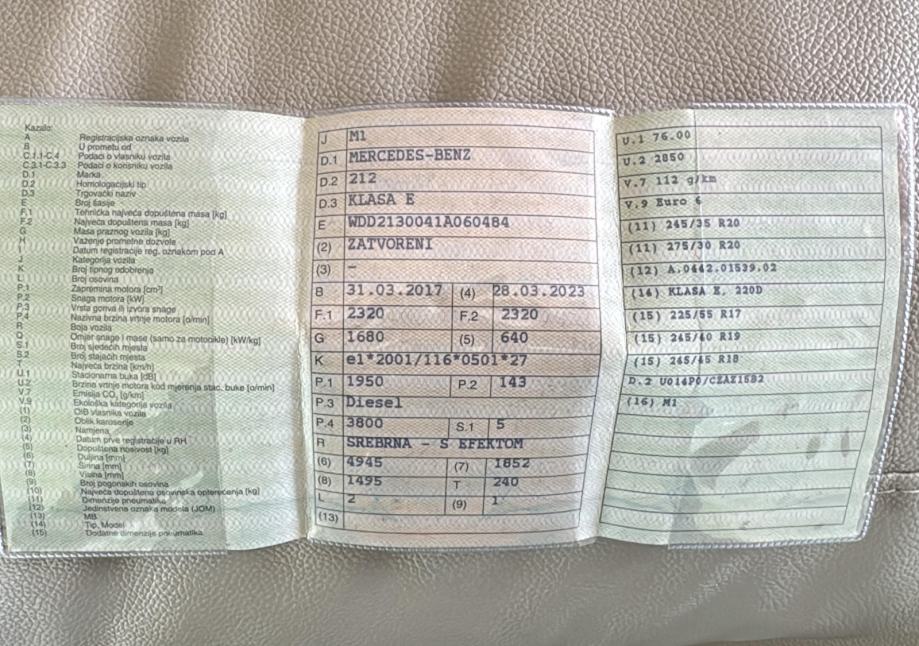 Kazalo:
A Registracijska oznaka vozila
B U prometu od
C.1.1-C.4 Podaci o vlasniku vozila
C.3.1-C.3.3 Podaci o korisniku vozila
D.1 Marka
D.2 Homologacijski tip
D.3 Trgovački naziv
E Broj šasije
F.1 Tehnička najveća dopuštena masa [kg]
F.2 Najveća dopuštena masa [kg]
G Masa praznog vozila [kg]
H Važenje prometne dozvole
I Datum registracije reg. oznakom pod A
J Kategorija vozila
K Broj tipnog odobrenja
L Broj osovina
P.1 Zapremina motora [cm³]
P.2 Snaga motora [kW]
P.3 Vrsta goriva ili izvora snage
P.4 Nazivna brzina vrtnje motora [o/min]
R Boja vozila
Q Omjer snage i mase (samo za motocikle) [kW/kg]
S.1 Broj sjedećih mjesta
S.2 Broj stajaćih mjesta
T Najveća brzina [km/h]
U.1 Stacionarna buka [dB]
U.2 Brzina vrtnje motora kod mjerenja stac. buke [o/min]
V.7 Emisija CO₂ [g/km]
V.9 Ekološka kategorija vozila
(1) OIB vlasnika vozila
(2) Oblik karoserije
(3) Namjena
(4) Datum prve registracije u RH
(5) Dopuštena nosivost [kg]
(6) Duljina [mm]
(7) Širina [mm]
(8) Visina [mm]
(9) Broj pogonskih osovina
(10) Najveća dopuštena osovinska opterećenja [kg]
(11) Dimenzije pneumatika
(12) Jedinstvena oznaka modela (JOM)
(13) MB
(14) Tip, Model
(15) Dodatne dimenzije pneumatika
J M1
D.1 MERCEDES-BENZ
D.2 212
D.3 KLASA E
E WDD2130041A060484
(2) ZATVORENI
(3) –
B 31.03.2017 (4) 28.03.2023
F.1 2320 F.2 2320
G 1680 (5) 640
K e1*2001/116*0501*27
P.1 1950 P.2 143
P.3 Diesel
P.4 3800 S.1 5
R SREBRNA - S EFEKTOM
(6) 4945 (7) 1852
(8) 1495 T 240
L 2 (9) 1
(13)
U.1 76.00
U.2 2850
V.7 112 g/km
V.9 Euro 6
(11) 245/35 R20
(11) 275/30 R20
(12) A.0442.01539.02
(14) KLASA E, 220D
(15) 225/55 R17
(15) 245/40 R19
(15) 245/45 R18
D.2 U014P0/CZAZ1582
(16) M1